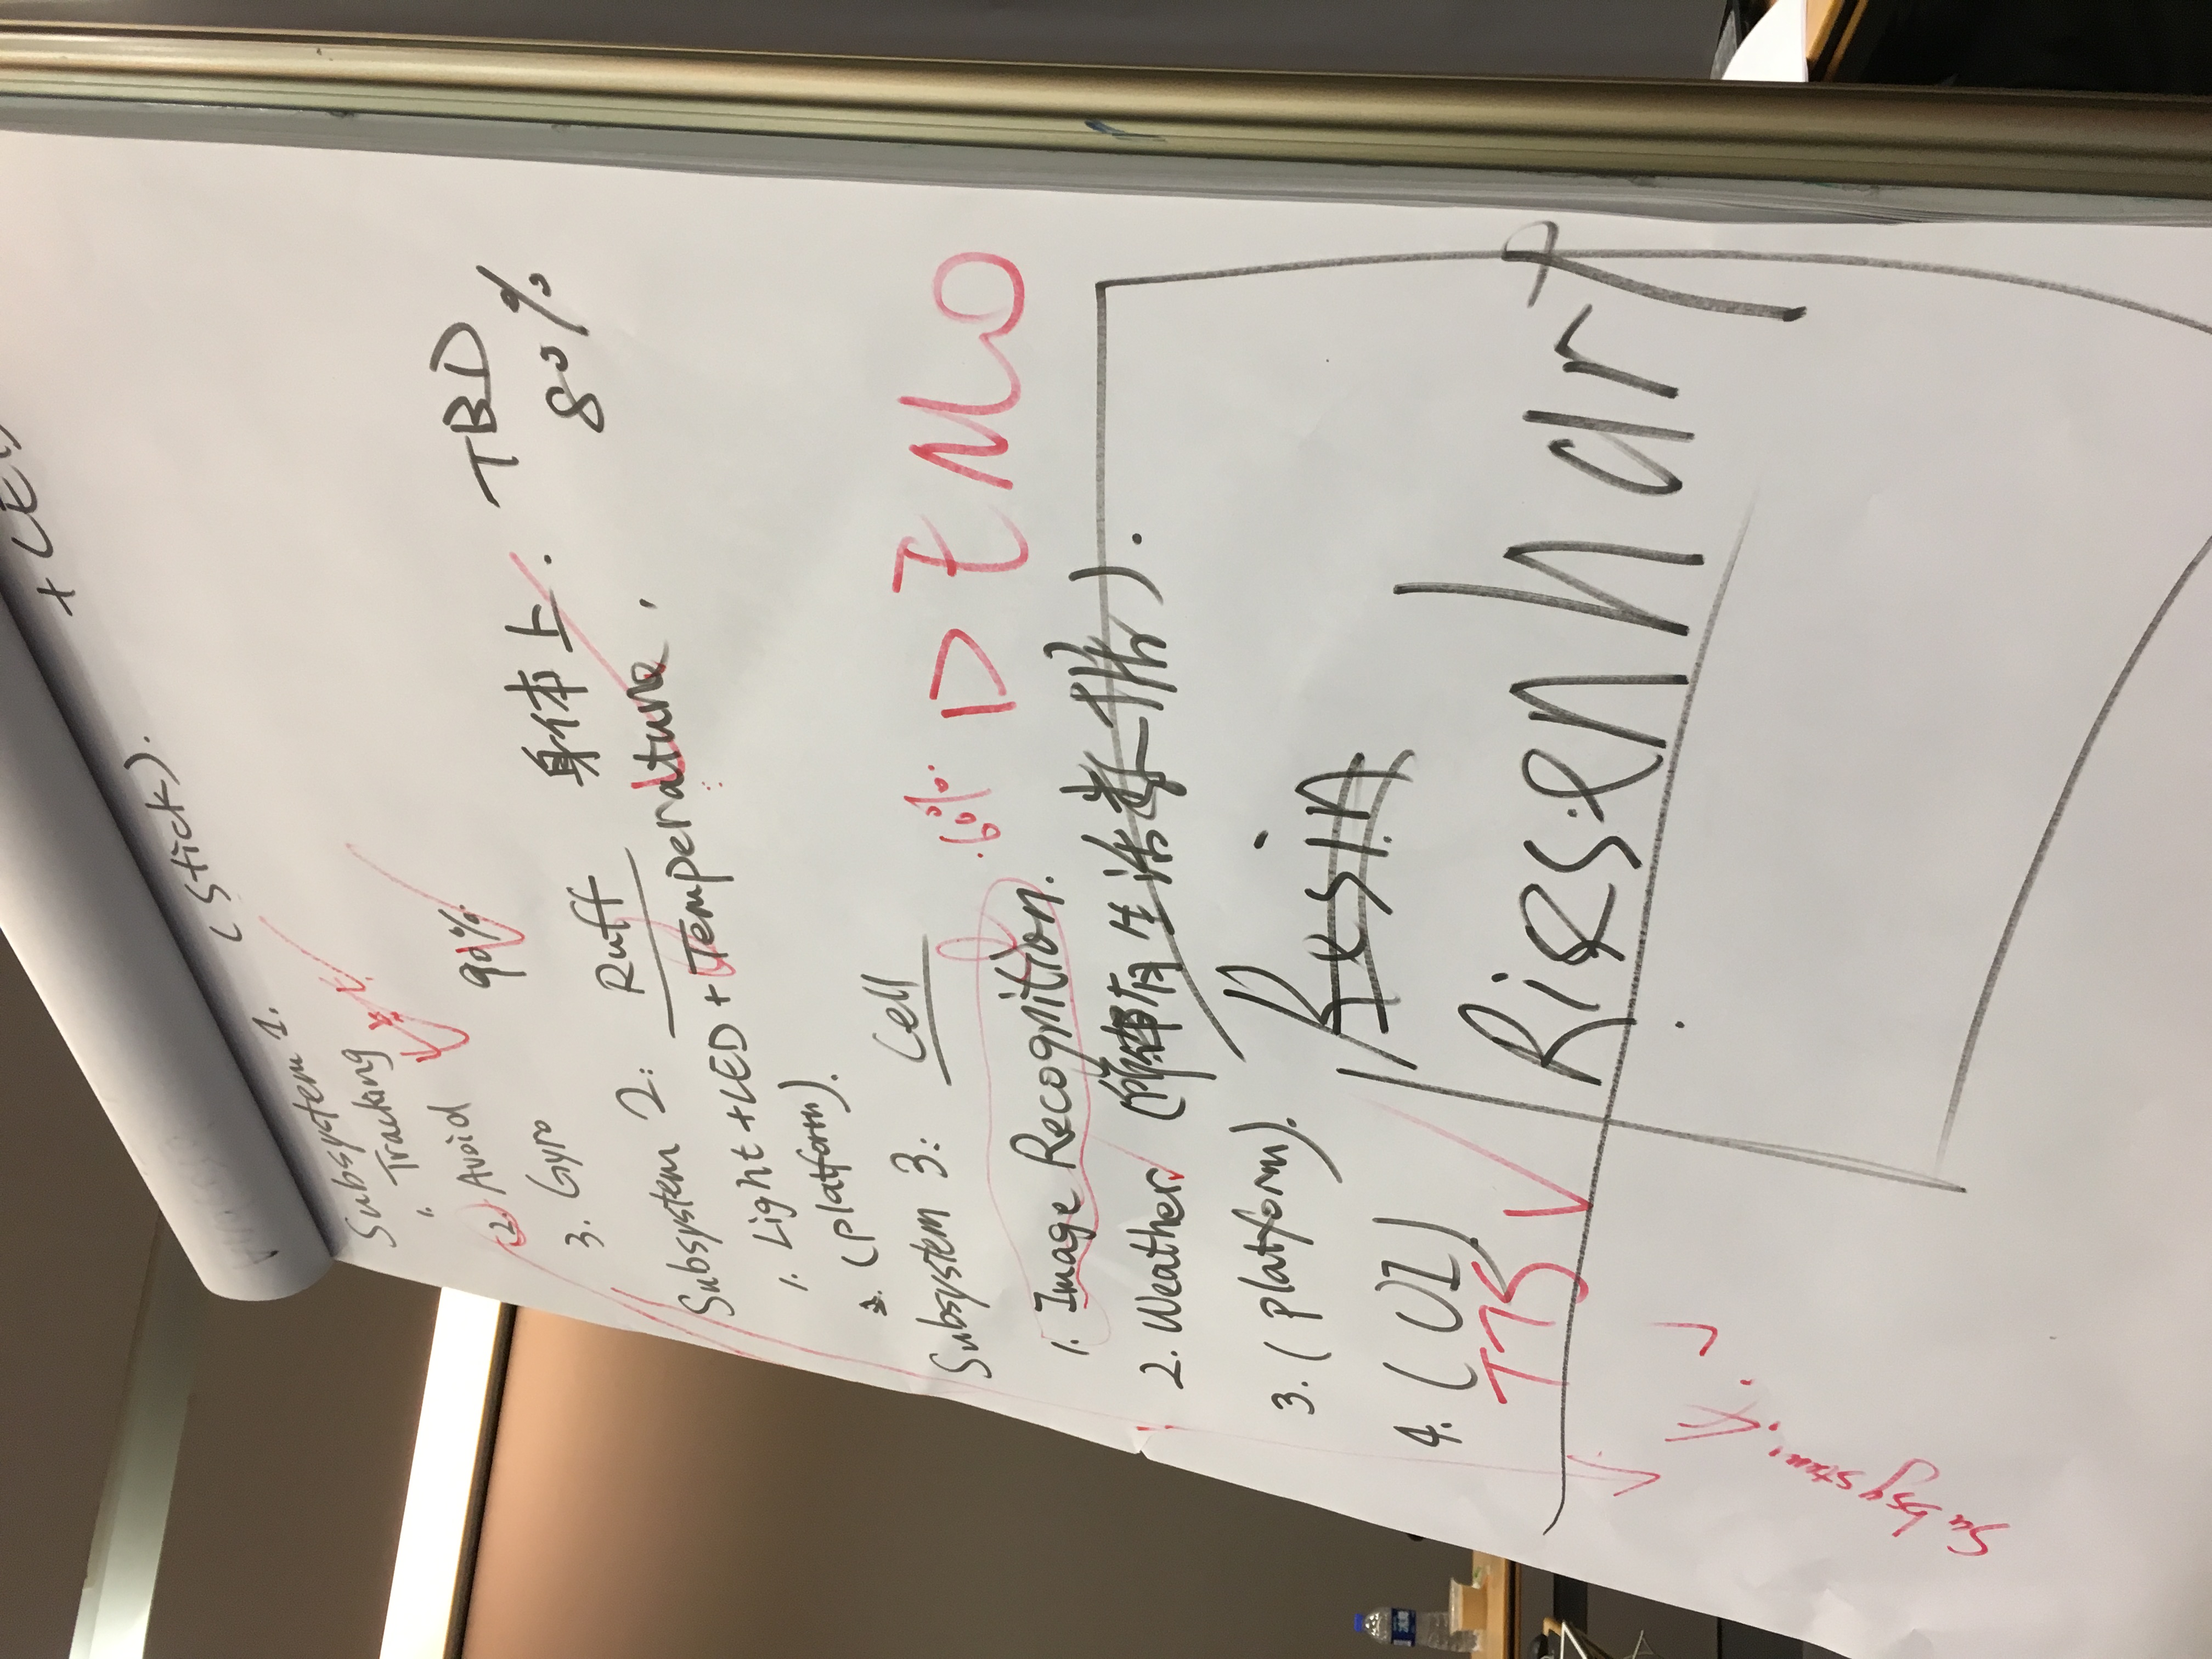 + LED
Subsystem 1. (Stick).
1. Tracking
2. Avoid
3. Gyro 90%
Subsystem 2: Ruff 身体上. TBD
80%
1. Light + LED + Temperature.
2. (platform).
Subsystem 3: Cell
1. Image Recognition. 60% DEMO
2. Weather (所有生活数据).
3. (platform).
4. (UI)
TTS
Resin
Riesenhart
Subsystem 4.